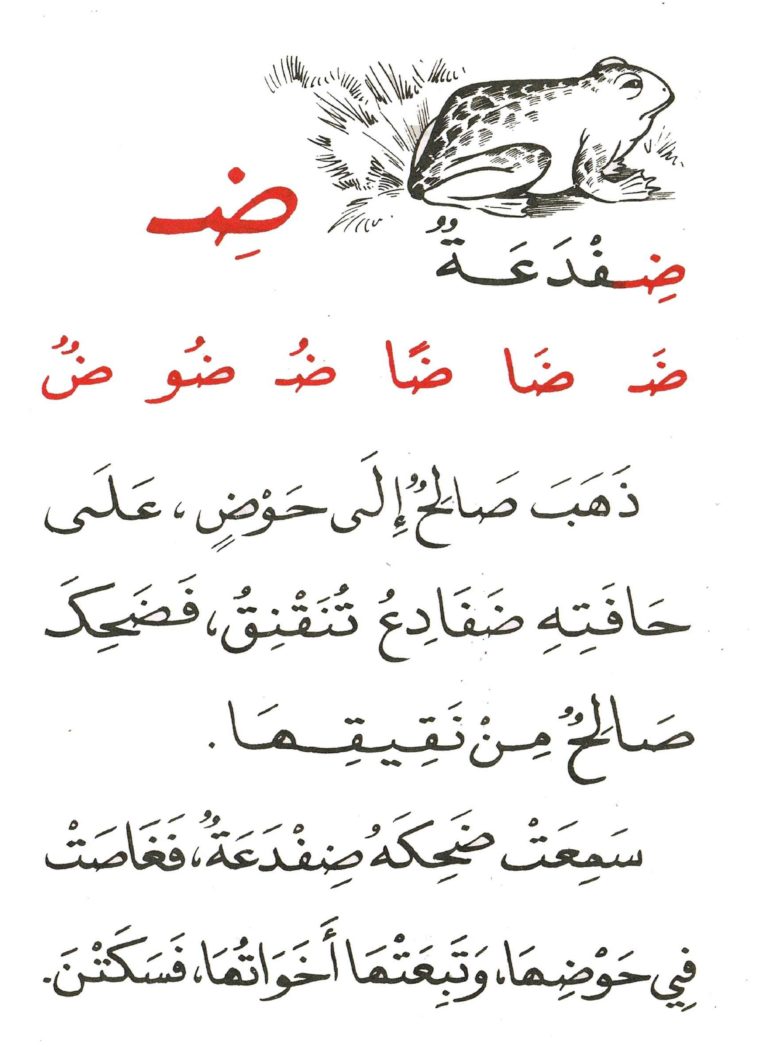 ضِـ
ضِفْدَعَـةٌ
ضَ ضَا ضًا ضُ ضُو ضٌ
ذَهَبَ صَالِحٌ إِلَى حَوْضٍ، عَلَى
حَافَتِهِ ضَفَادِعُ تُنَقْنِقُ، فَضَحِكَ
صَالِحٌ مِنْ نَقِيقِهَا.
سَمِعَتْ ضَحِكَهُ ضِفْدَعَةٌ، فَغَاصَتْ
فِي حَوْضِهَا، وَتَبِعَتْهَا أَخَوَاتُهَا، فَسَكَتْنَ.